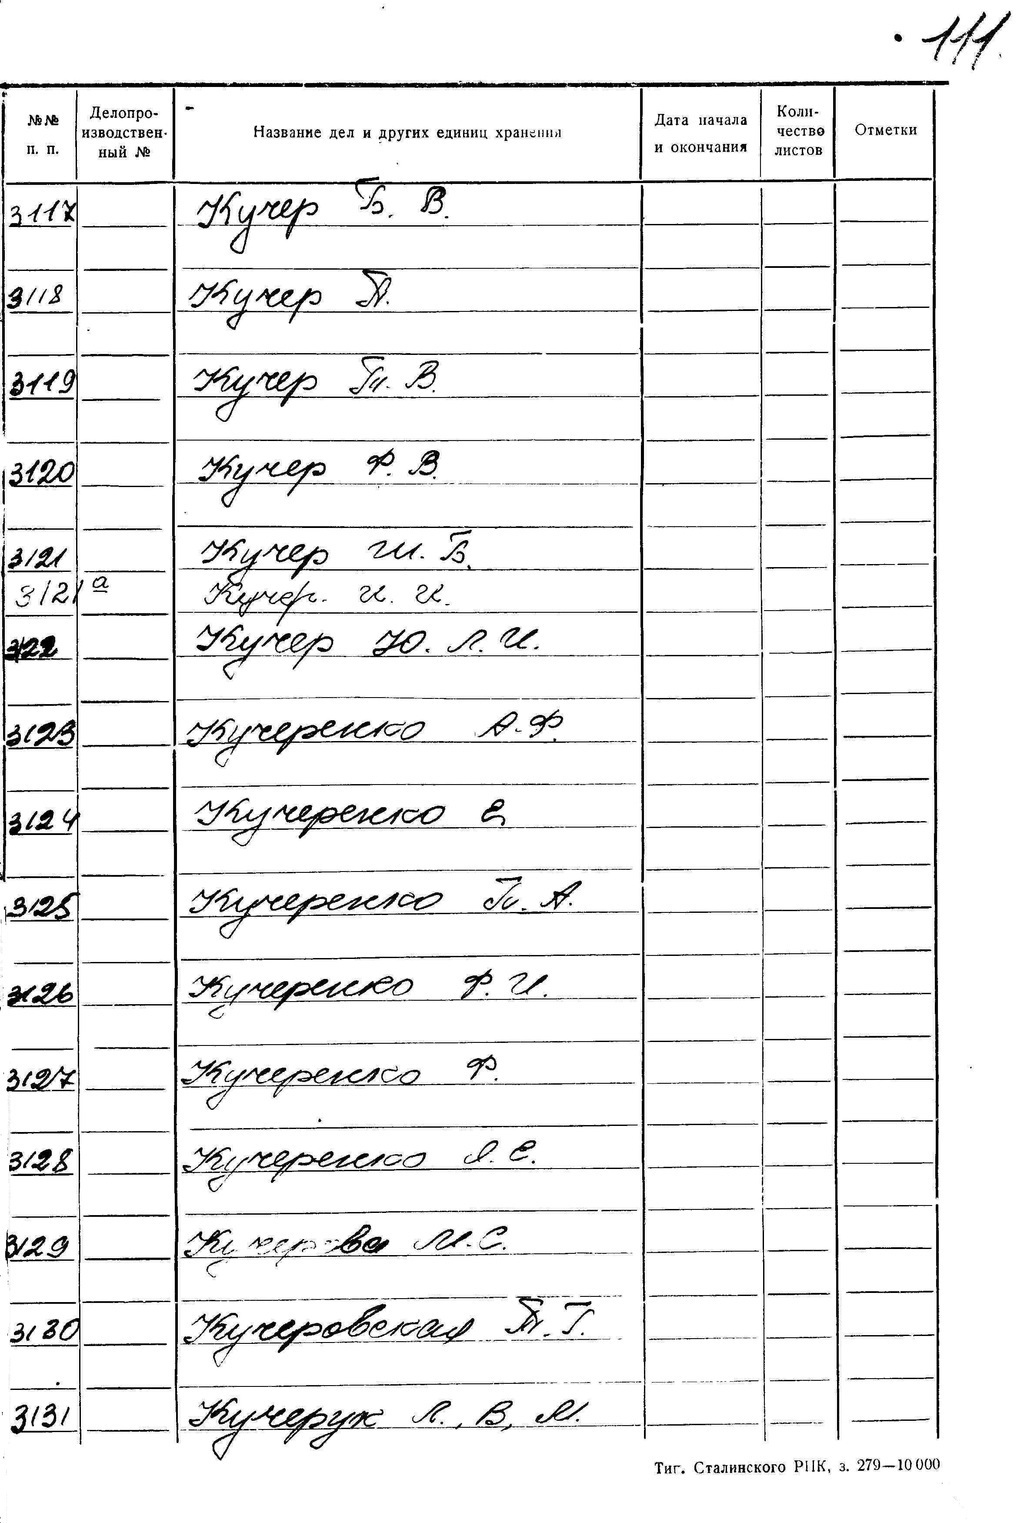 111.
№№ п. п.
Делопро-изводствен-ный №
Название дел и других единиц хранения
Дата начала и окончания
Коли-чество листов
Отметки
3117 Кучер Б. В.
3118 Кучер П.
3119 Кучер В.
3120 Кучер Ф. В.
3121 Кучер Ш. Б.
3121а Кучер. И. И.
3122 Кучер Ю. Л. И.
3123 Кучеренко А. Ф.
3124 Кучеренко Е.
3125 Кучеренко А.
3126 Кучеренко Ф. И.
3127 Кучеренко Ф.
3128 Кучеренко Я. Е.
3129 Кучерова М. С.
3130 Кучеровская Г.
3131 Кучерук Л., В, М.
Тиг. Сталинского РПК, з. 279—10 000